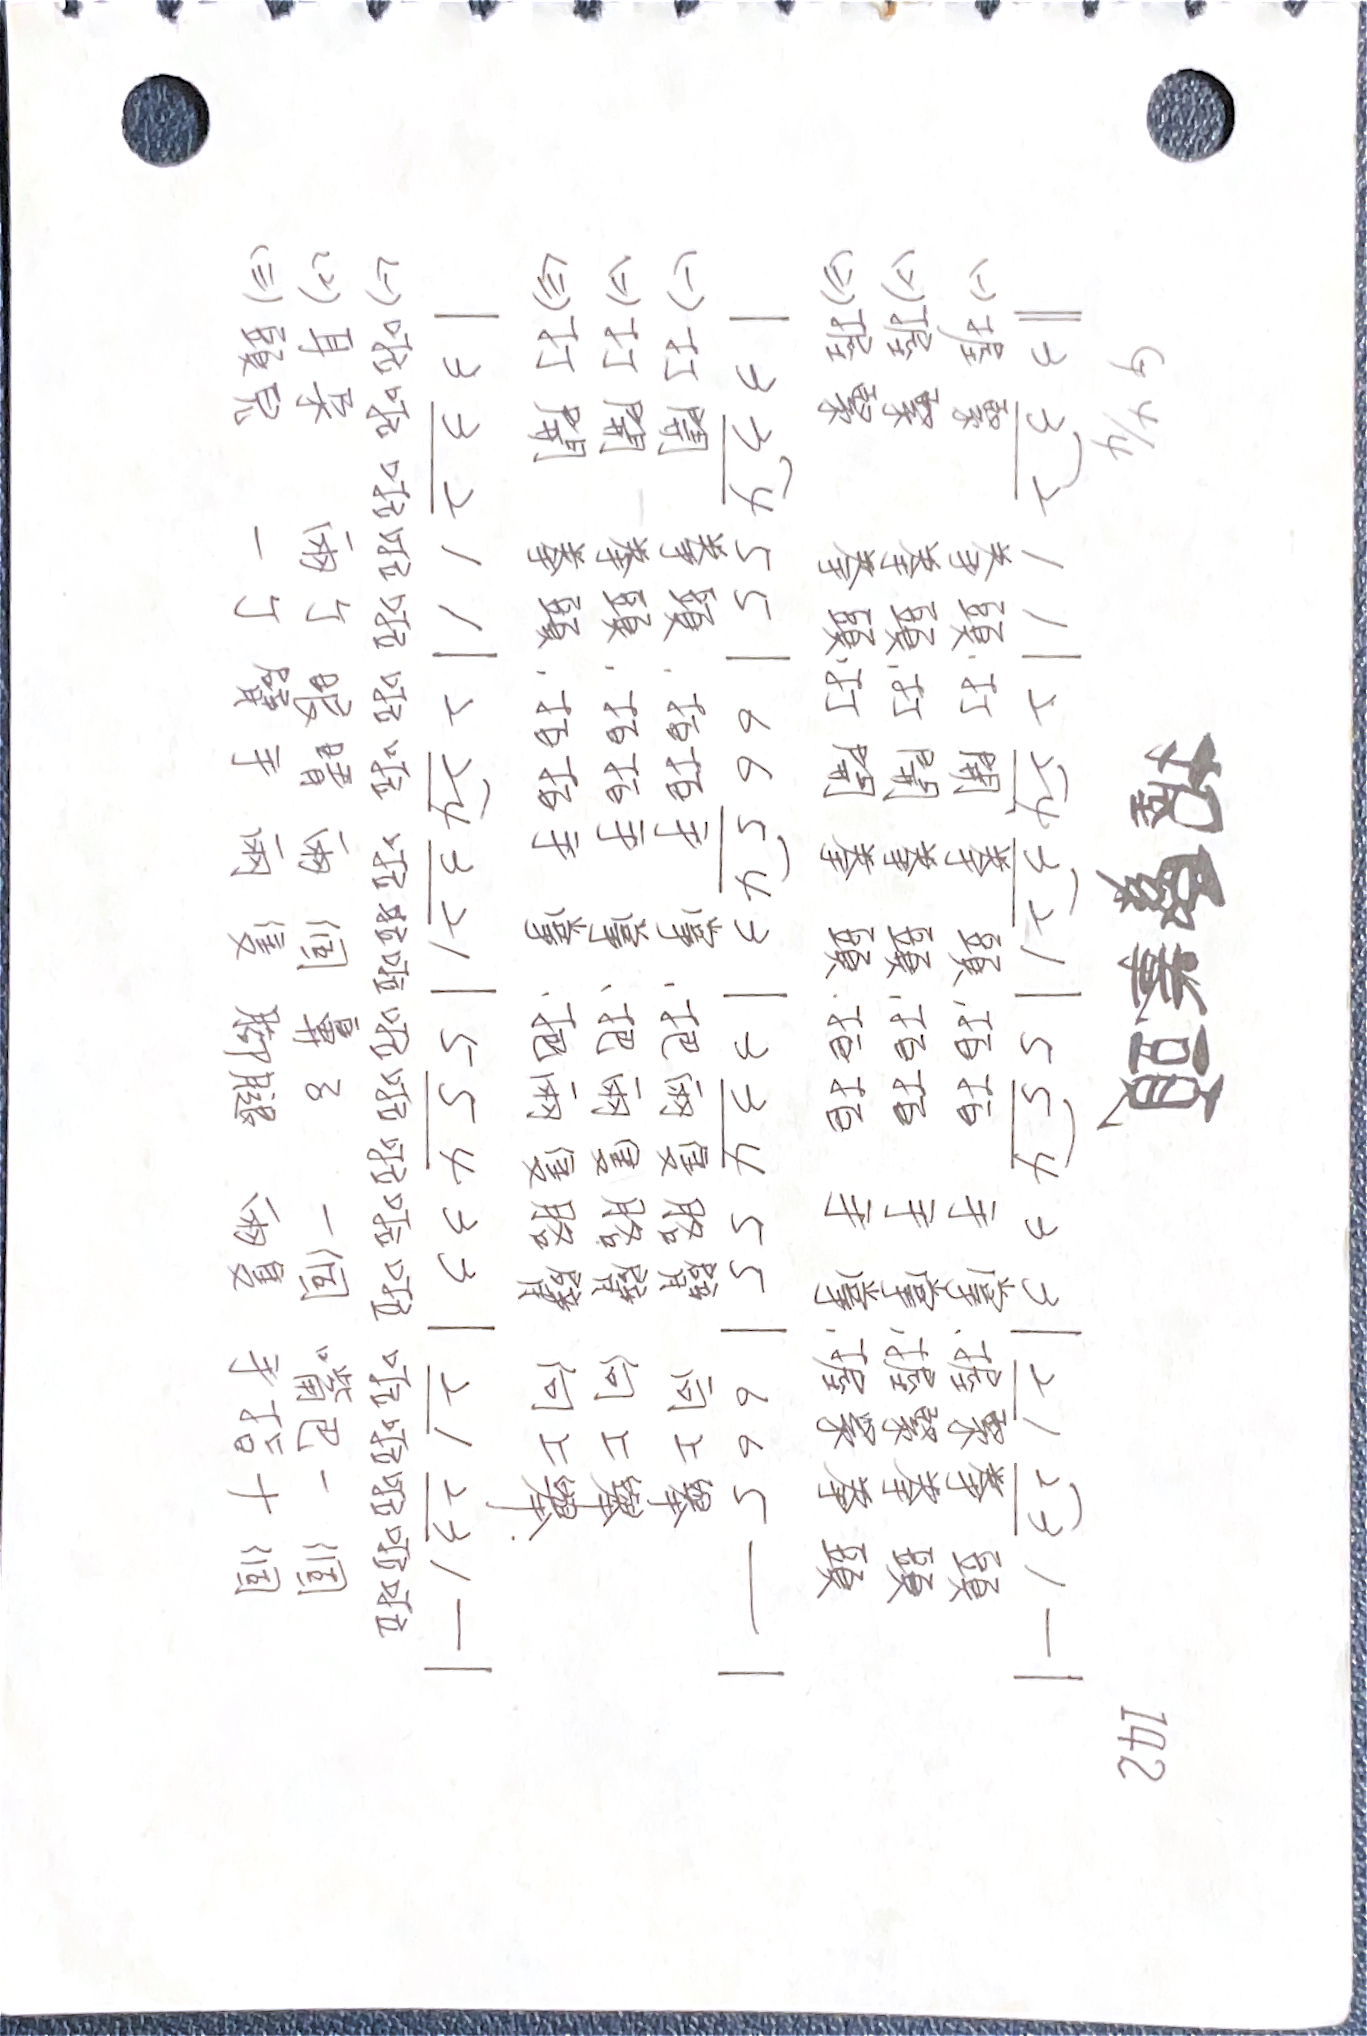 握緊拳頭
G 4/4
142
‖3 3 2 1 1|2 2 4 3 2 1|5 5 4 3 3|2 1 2 3 1 —|
(一)握緊 拳頭,打開 拳 頭,拍拍 手 掌,握緊拳 頭
(二)握緊 拳頭,打開 拳 頭,拍拍 手 掌,握緊拳 頭
(三)握緊 拳頭,打開 拳 頭.拍拍 手 掌,握緊拳 頭
|3 3 4 5 5|6 6 5 4 3|3 3 4 5 5|6 6 5 —|
(一)打開 拳頭,拍拍手 掌,把兩隻胳臂 向上舉
(二)打開 拳頭,拍拍手 掌,把兩隻胳臂 向上舉
(三)打開 拳頭,拍拍手 掌,把兩隻胳臂 向上舉.
|3 3 2 1 1|2 2 4 3 2 1|5 5 4 3 3|2 1 2 3 1 —|
(一)啦啦 啦啦啦 啦啦 啦啦啦 啦啦啦啦啦 啦啦啦啦啦
(2)耳朵 兩个 眼睛 兩 個 鼻子 一個 嘴巴一 個
(三)頭兒 一个 臂手 兩 隻 腳腿 兩隻 手指十 個